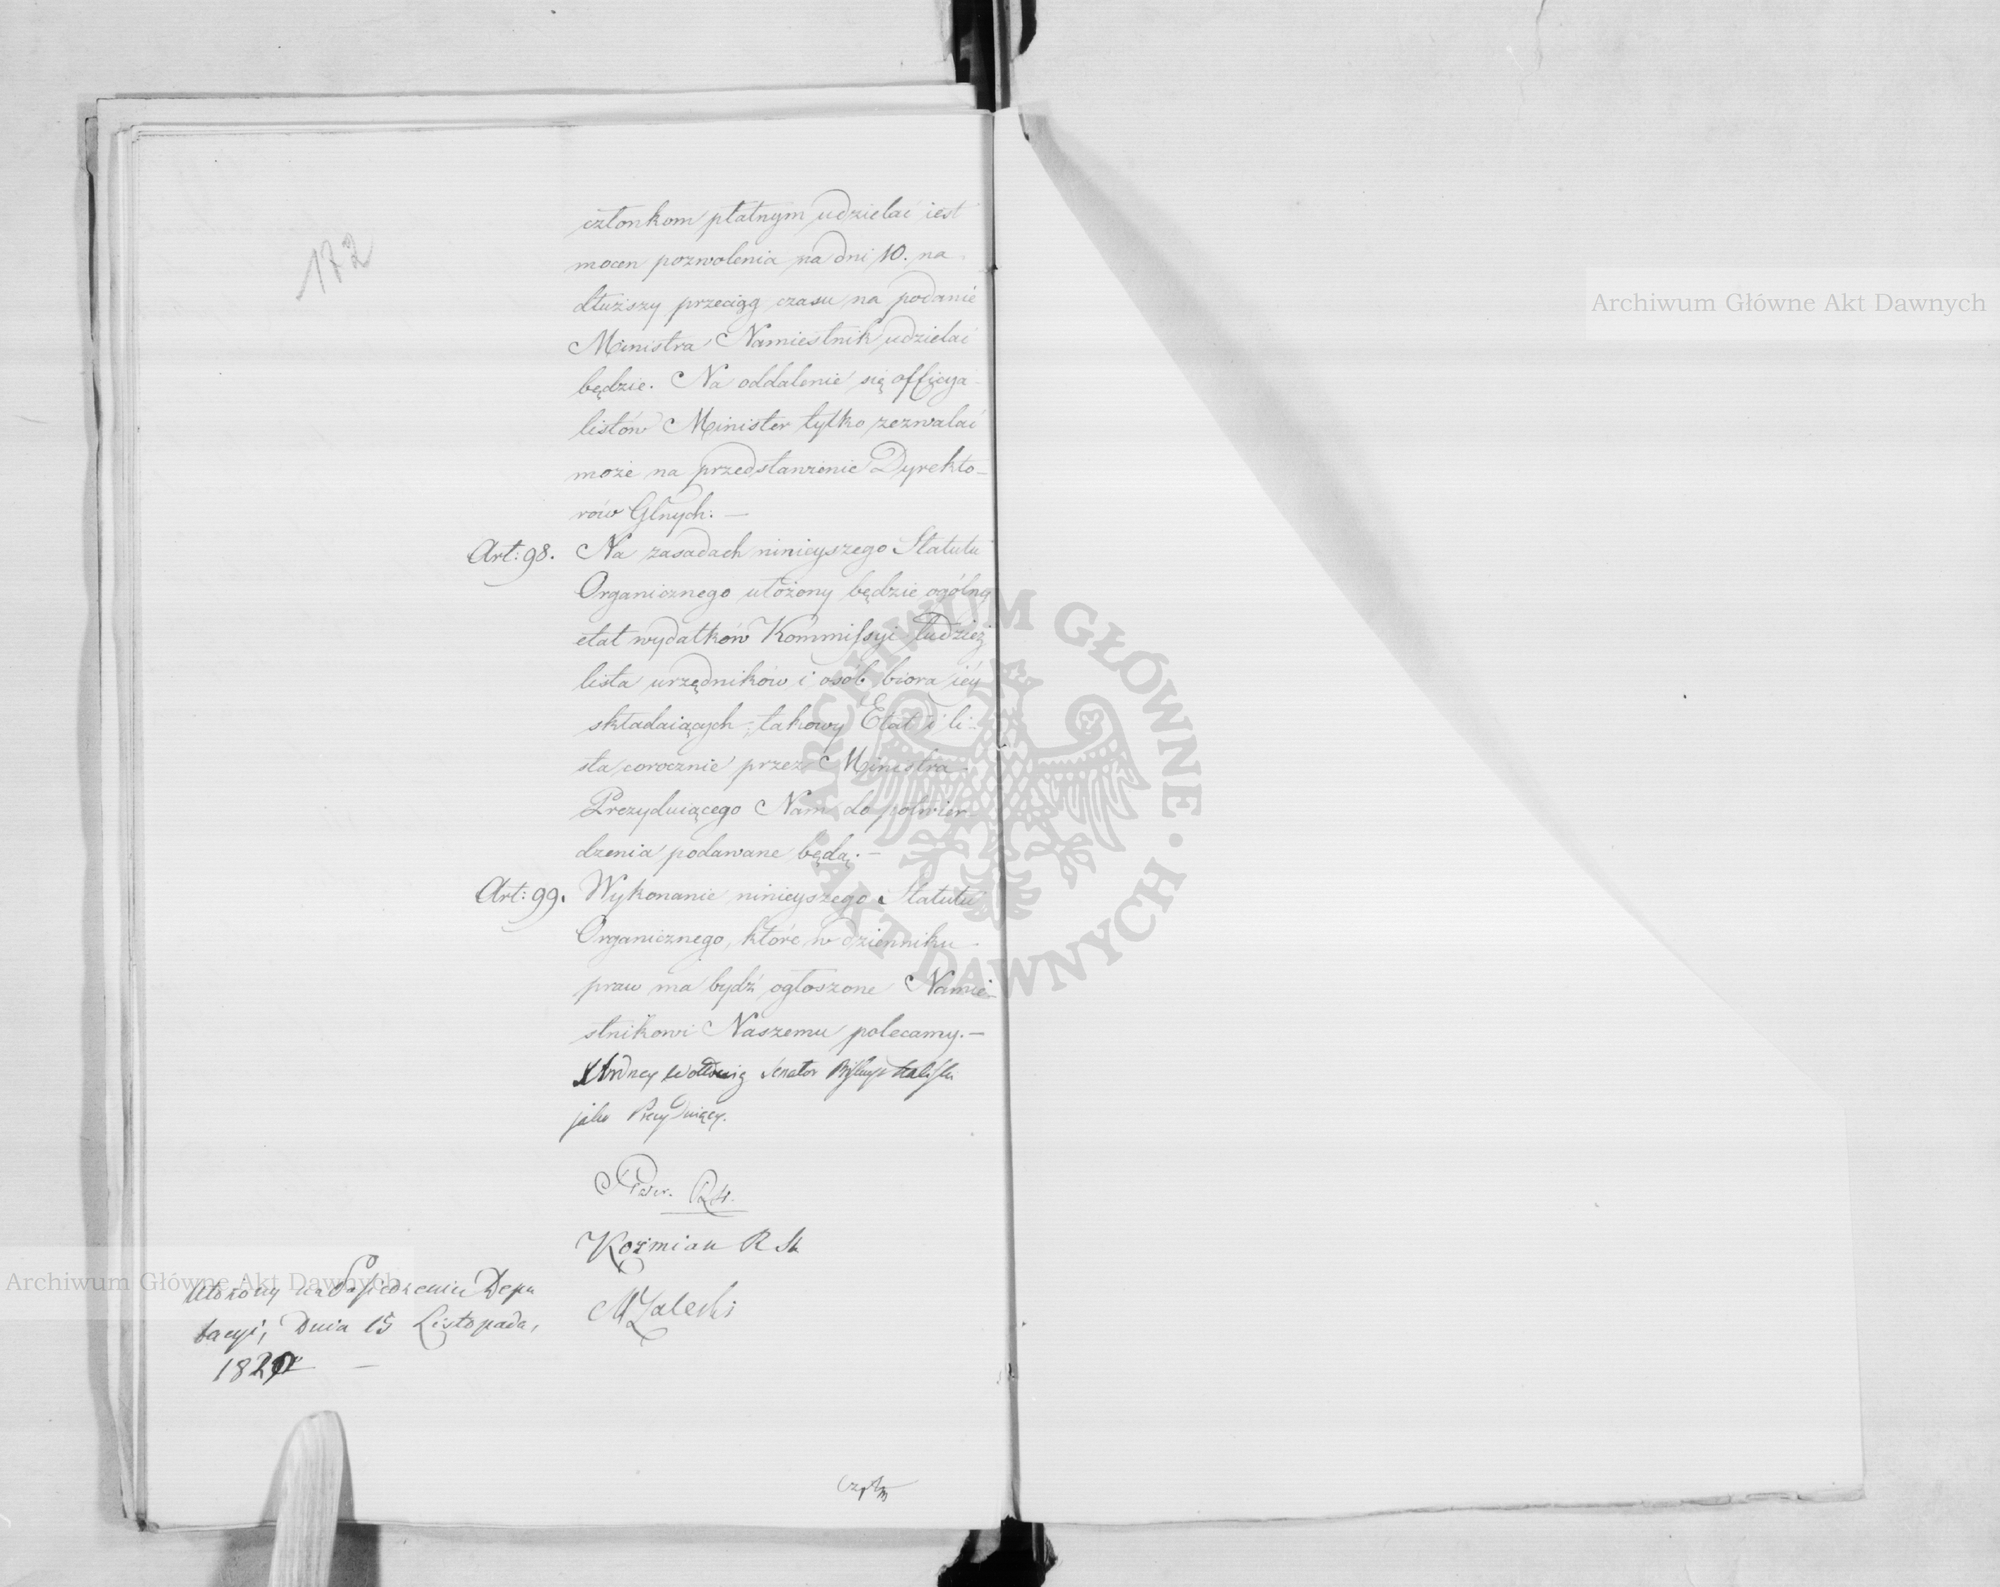 172
członkom płatnym udzielać iest
mocen pozwolenia na dni 10. na
dłuższy przeciąg czasu na podanie
Ministra Namiestnik udzielać
będzie. Na oddalenie się officya-
listów Minister tylko zezwalać
może na przedstawienie Dyrekto-
rów Glnych. —
Art: 98. Na zasadach ninieyszego Statutu
Organicznego ułożony będzie ogólny
etat wydatków Kommissyi tudzież
lista urzędników i osób biora iéy
składaiących, takowy Etat i li-
sta corocznie przez Ministra
Prezyduiącego Nam do potwier-
dzenia podawane będą. —
Art: 99. Wykonanie ninieyszego Statutu
Organicznego, które w dzienniku
praw ma bydź ogłoszone Namie-
stnikowi Naszemu polecamy. —
Senator
jako Prezyduiący.
Koźmian R St.
M Zaleski
Ułożony na Posiedzeniu Depu
tacyi, Dnia 15 Listopada,
Archiwum Główne Akt Dawnych
Archiwum Główne Akt Dawnych
ARCHIWUM GŁÓWNE · AKT DAWNYCH ·